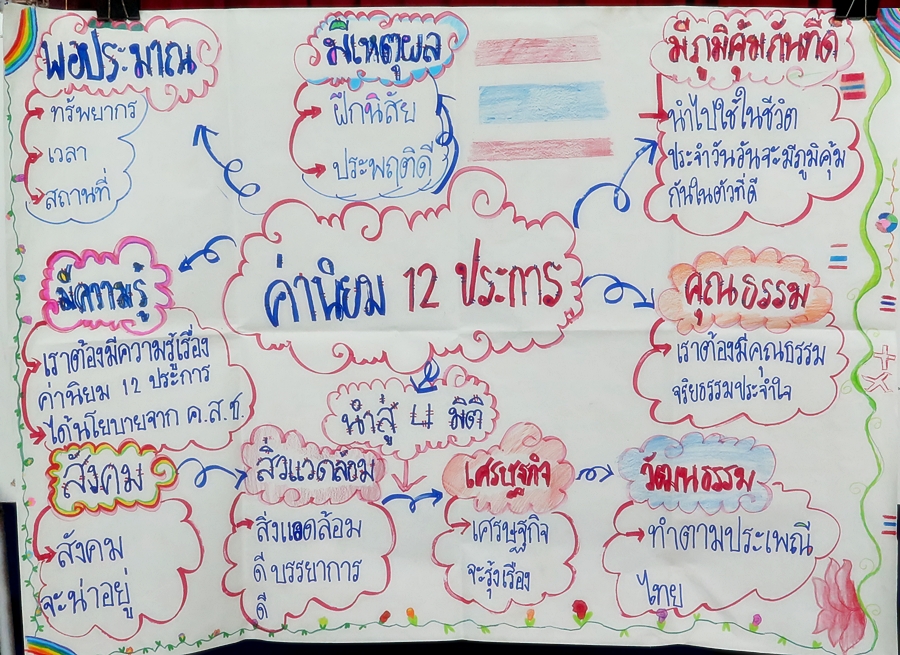 พอประมาณ
ทรัพยากร
เวลา
สถานที่
มีเหตุผล
ฝึกนิสัย
ประพฤติดี
มีภูมิคุ้มกันที่ดี
นำไปใช้ในชีวิต
ประจำวันอันจะมีภูมิคุ้ม
กันในตัวที่ดี
ค่านิยม 12 ประการ
มีความรู้
เราต้องมีความรู้เรื่อง
ค่านิยม 12 ประการ
ได้นโยบายจาก ค.ส.ช.
คุณธรรม
เราต้องมีคุณธรรม
จริยธรรมประจำใจ
นำสู่ 4 มิติ
สังคม
สังคม
จะน่าอยู่
สิ่งแวดล้อม
สิ่งแวดล้อม
ดีบรรยาการ
ดี
เศรษฐกิจ
เศรษฐกิจ
จะรุ่งเรือง
วัฒนธรรม
ทำตามประเพณี
ไทย